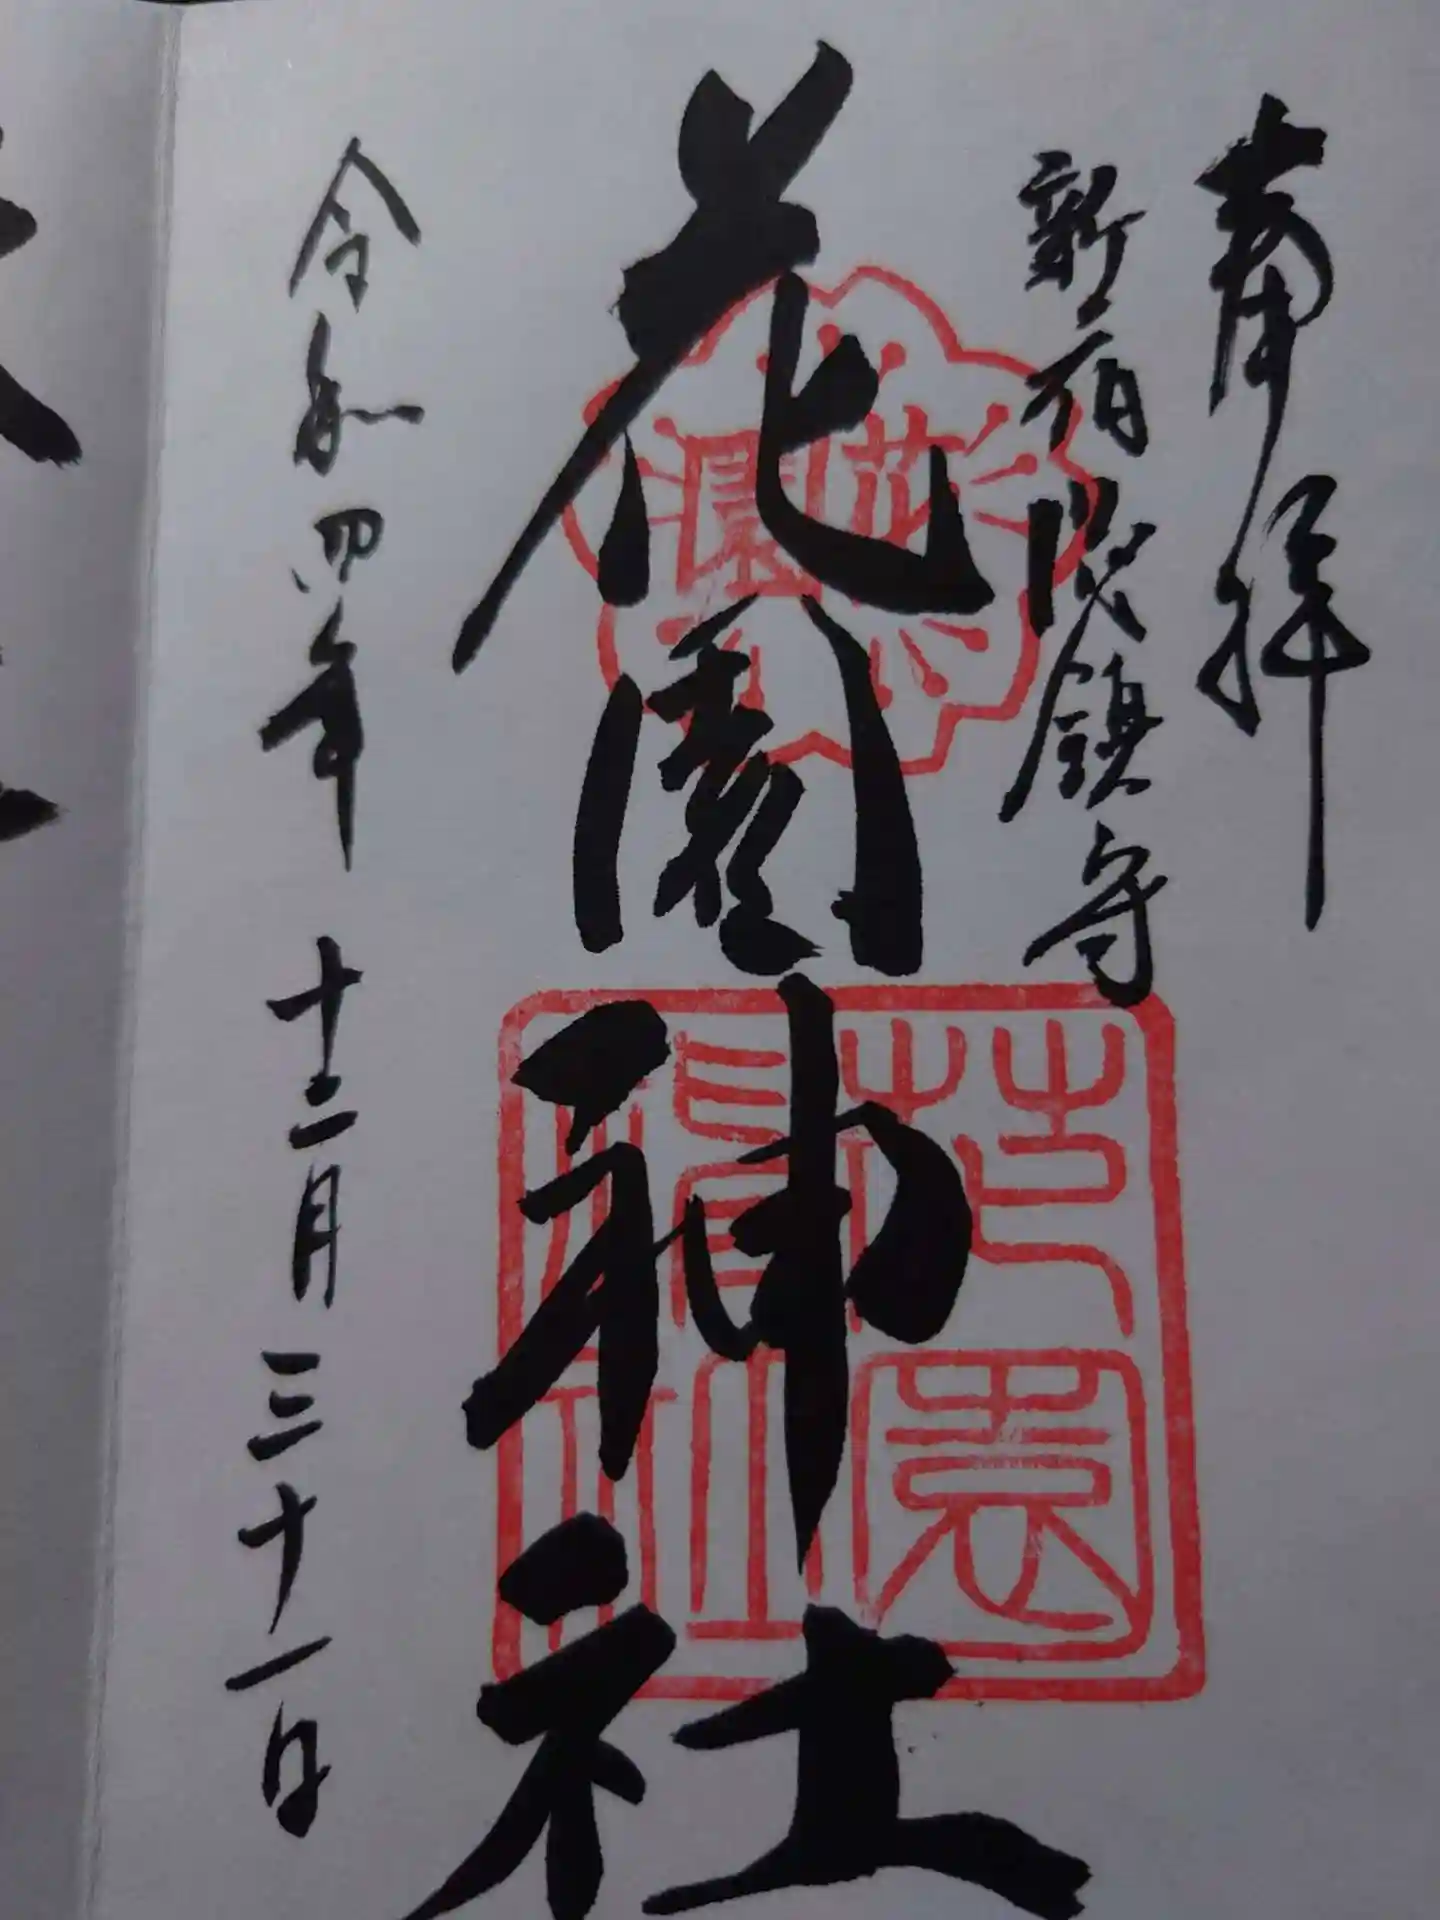 奉拝
新宿総鎮守
花園神社
花園
花園神社
令和四年 十二月 三十一日